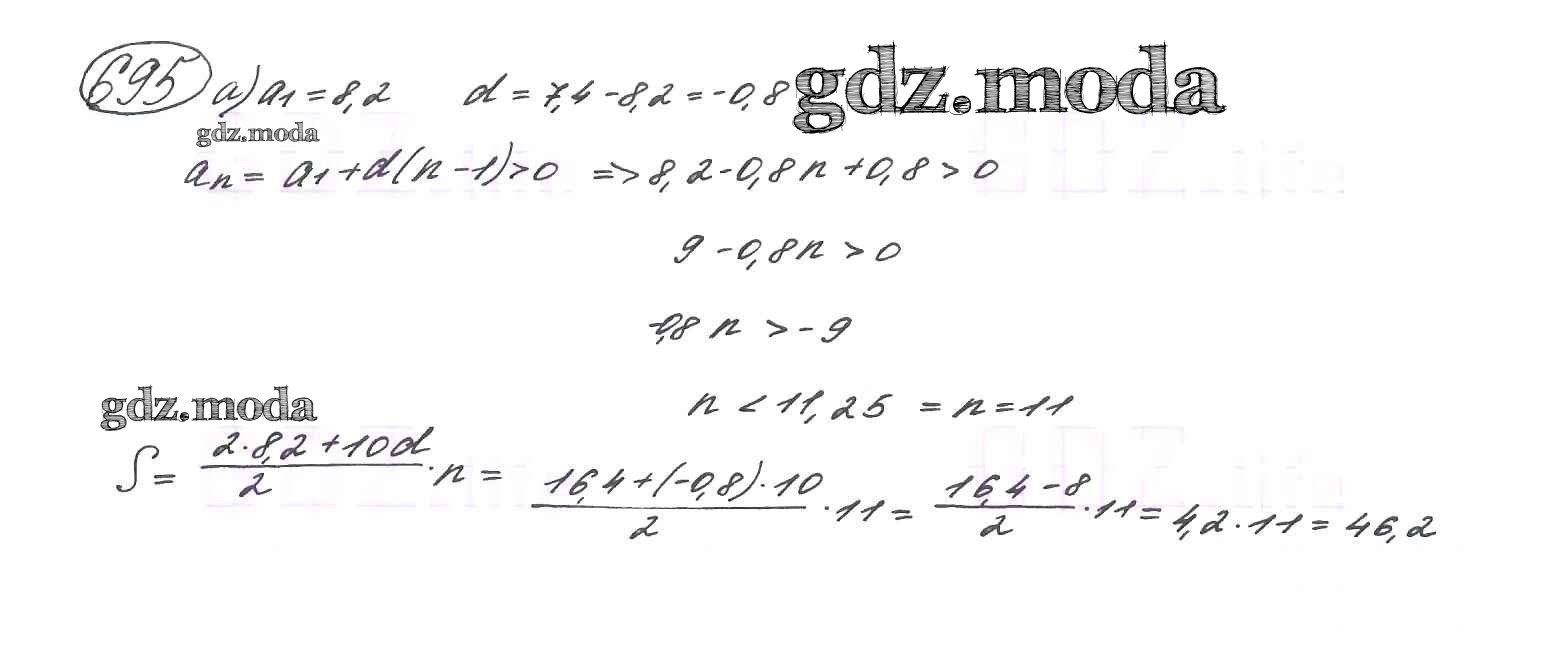 695 а) a₁ = 8,2 d = 7,4 - 8,2 = -0,8 gdz.moda
gdz.moda
aₙ = a₁ + d(n - 1) > 0 => 8,2 - 0,8n + 0,8 > 0
9 - 0,8n > 0
-0,8 n > - 9
gdz.moda
n < 11,25 = n = 11
S = (2·8,2 + 10d)/2 · n = (16,4 + (-0,8)·10)/2 · 11 = (16,4 - 8)/2 · 11 = 4,2 · 11 = 46,2